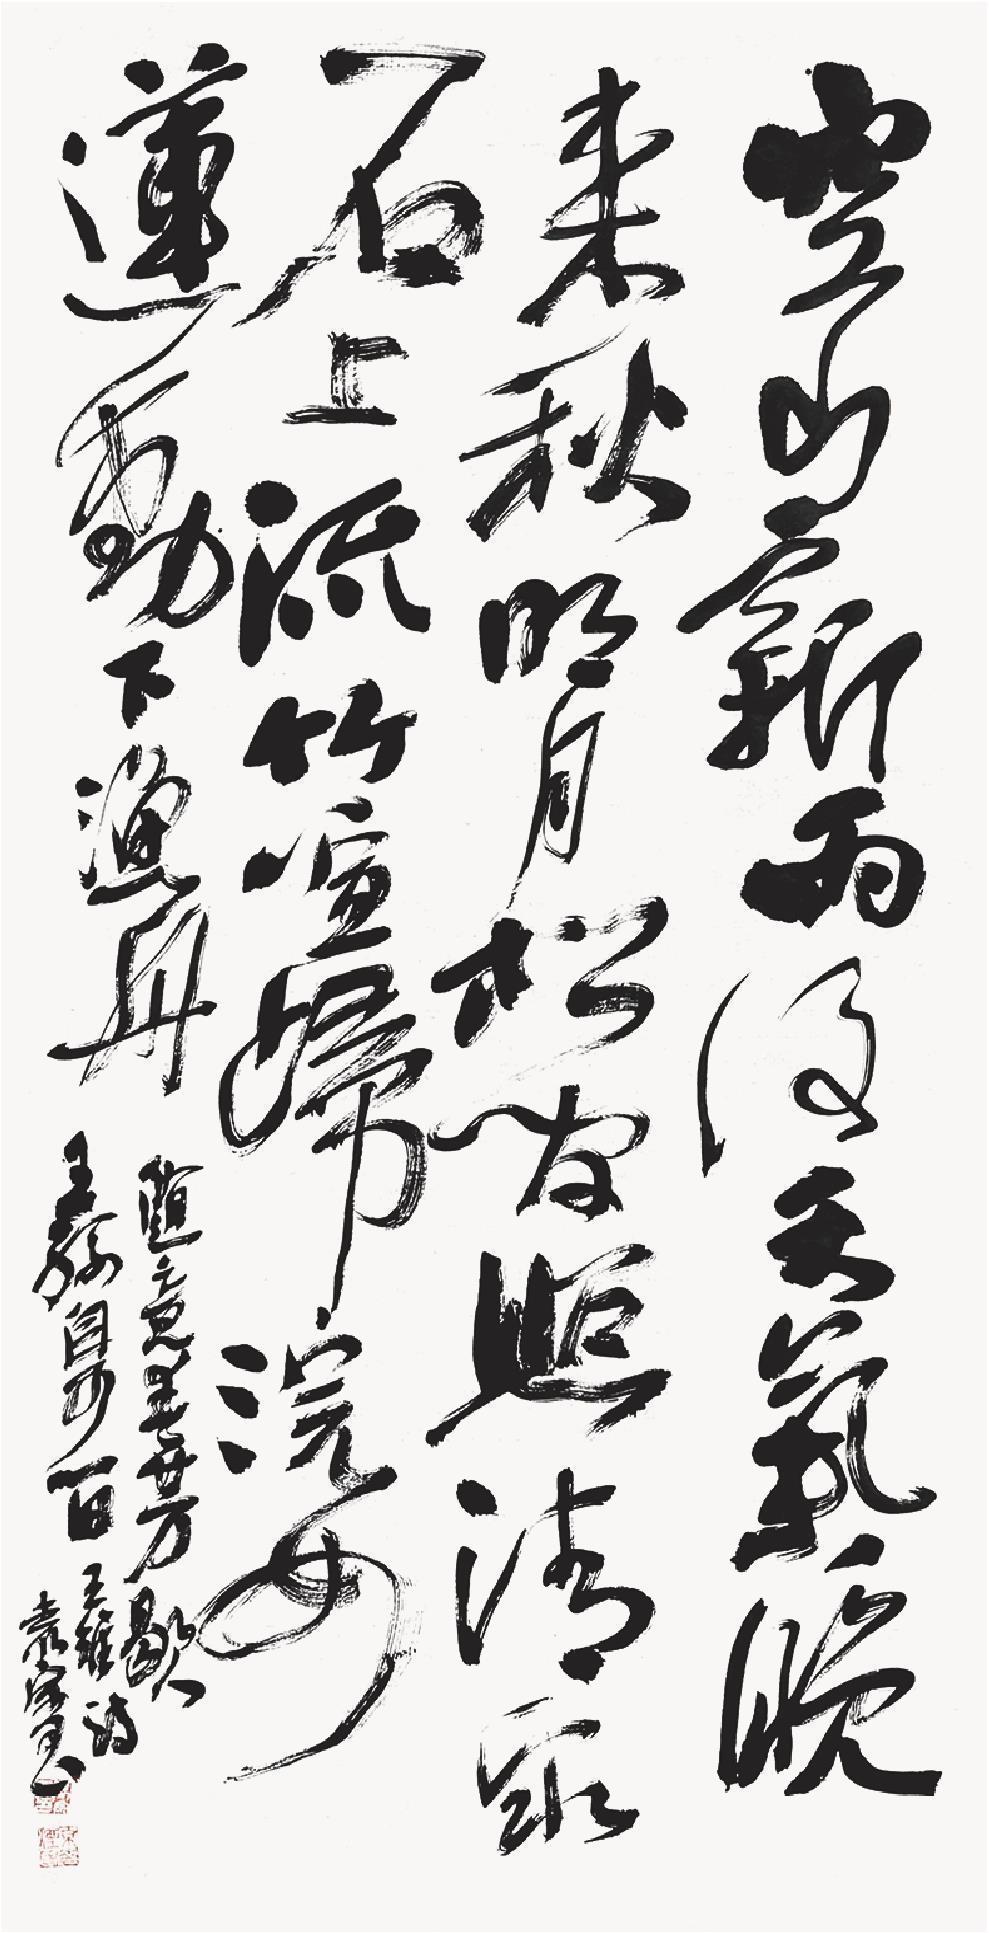 空山新雨後天氣晚
来秋明月松間照清泉
石上流竹喧歸浣女
蓮動下漁舟
随意春芳歇
王孫自可留
王維詩